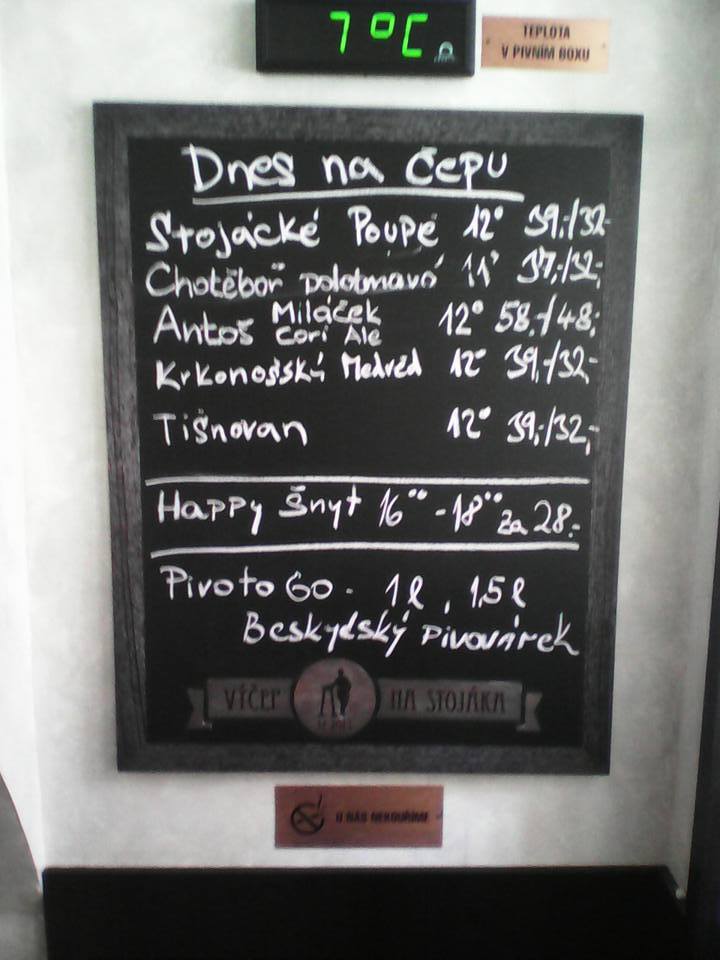 7°C
TEPLOTA
V PIVNÍM BOXU
Dnes na čepu
Stojácké Poupě 12° 39,-/32-
Chotěboř polotmavý 11° 37,-/32,-
Antoš Miláček Cori Ale 12° 58,-/48,-
Krkonošský Medvěd 12° 39,-/32,-
Tišnovan 12° 39,-/32,-
Happy šnyt 16°° - 18°° za 28.-
Pivo to GO - 1 l, 1,5 l
Beskydský pivovárek
VÝČEP NA STOJÁKA
U NÁS NEKOUŘÍME